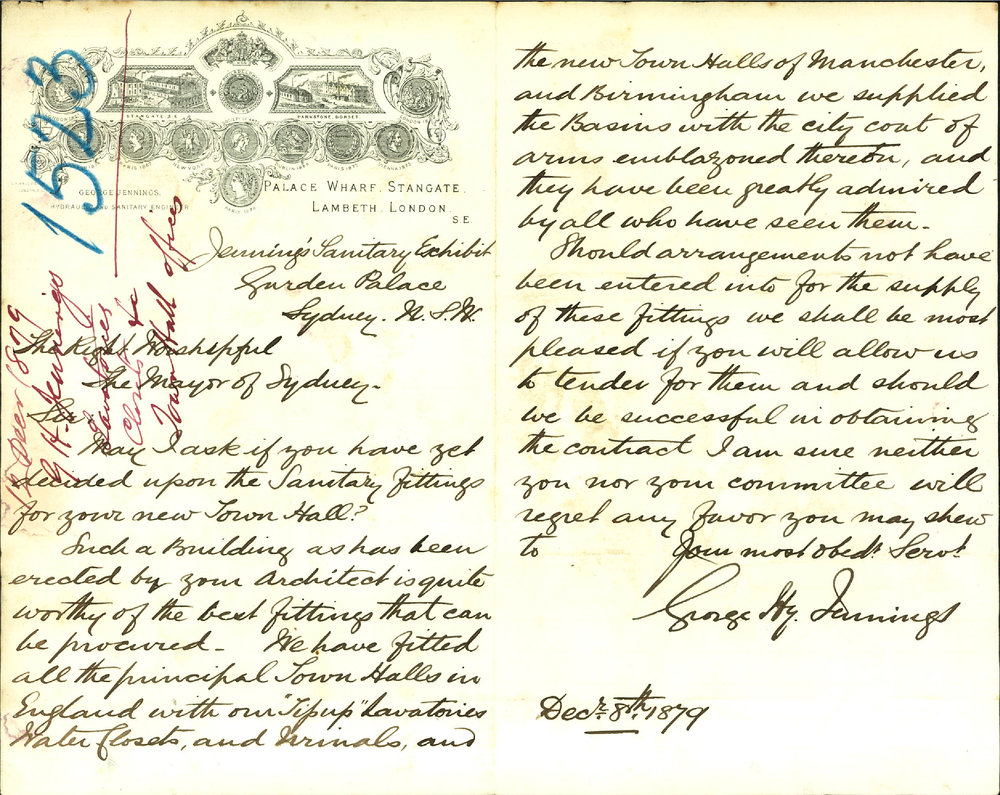 1523
STANGATE, S.E.
PARKSTONE, DORSET.
GEORGE JENNINGS.
HYDRAULIC AND SANITARY ENGINEER
PALACE WHARF, STANGATE.
LAMBETH. LONDON.
S.E
Jennings Sanitary Exhibit
Garden Palace
Sydney. N. S. W.
Decr 1879
G H Jennings
Lavatories
Closets &c
Town Hall offices
The Right Worshipful
The Mayor of Sydney -
Sir
May I ask if you have yet
decided upon the Sanitary fittings
for your new Town Hall?
Such a Building as has been
erected by your Architect is quite
worthy of the best fittings that can
be procured - We have fitted
all the principal Town Halls in
England with our "Tip up" Lavatories
Water Closets, and Urinals, and
the new Town Halls of Manchester,
and Birmingham we supplied
the Basins with the city coat of
arms emblazoned thereon, and
they have been greatly admired
by all who have seen them -
Should arrangements not have
been entered into for the supply
of these fittings we shall be most
pleased if you will allow us
to tender for them and should
we be successful in obtaining
the contract I am sure neither
you nor your committee will
regret any favor you may shew
to Your most obedt Servt
George Hy. Jennings
Decr. 8th. 1879